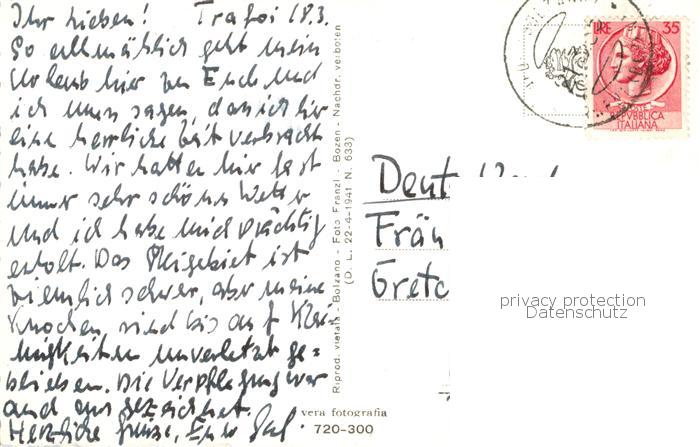 Ihr Lieben! Trafoi 18.3.
So allmählich geht mein
Urlaub hier zu Ende und
ich muss sagen, das ich hir
eine herrliche Zeit verbracht
habe. Wir hatten hier fast
immer sehr schönes Wetter
und ich habe mich prächtig
erholt. Das Skigebiet ist
ziemlich schwer, aber meine
Knochen sind bis auf Klei-
nigkeiten unverletzt ge=
blieben. Die Verpflegung war
auch ausgezeichnet.
Herzliche Grüsse, Euer
Riprod. vietata - Bolzano - Foto Franzl - Bozen - Nachdr. verboten
(D. L. 22-4-1941 N. 633)
vera fotografia
720-300
LIRE 35
POSTE
REPVBBLICA
ITALIANA
Deut
Fräu
Gret
privacy protection
Datenschutz